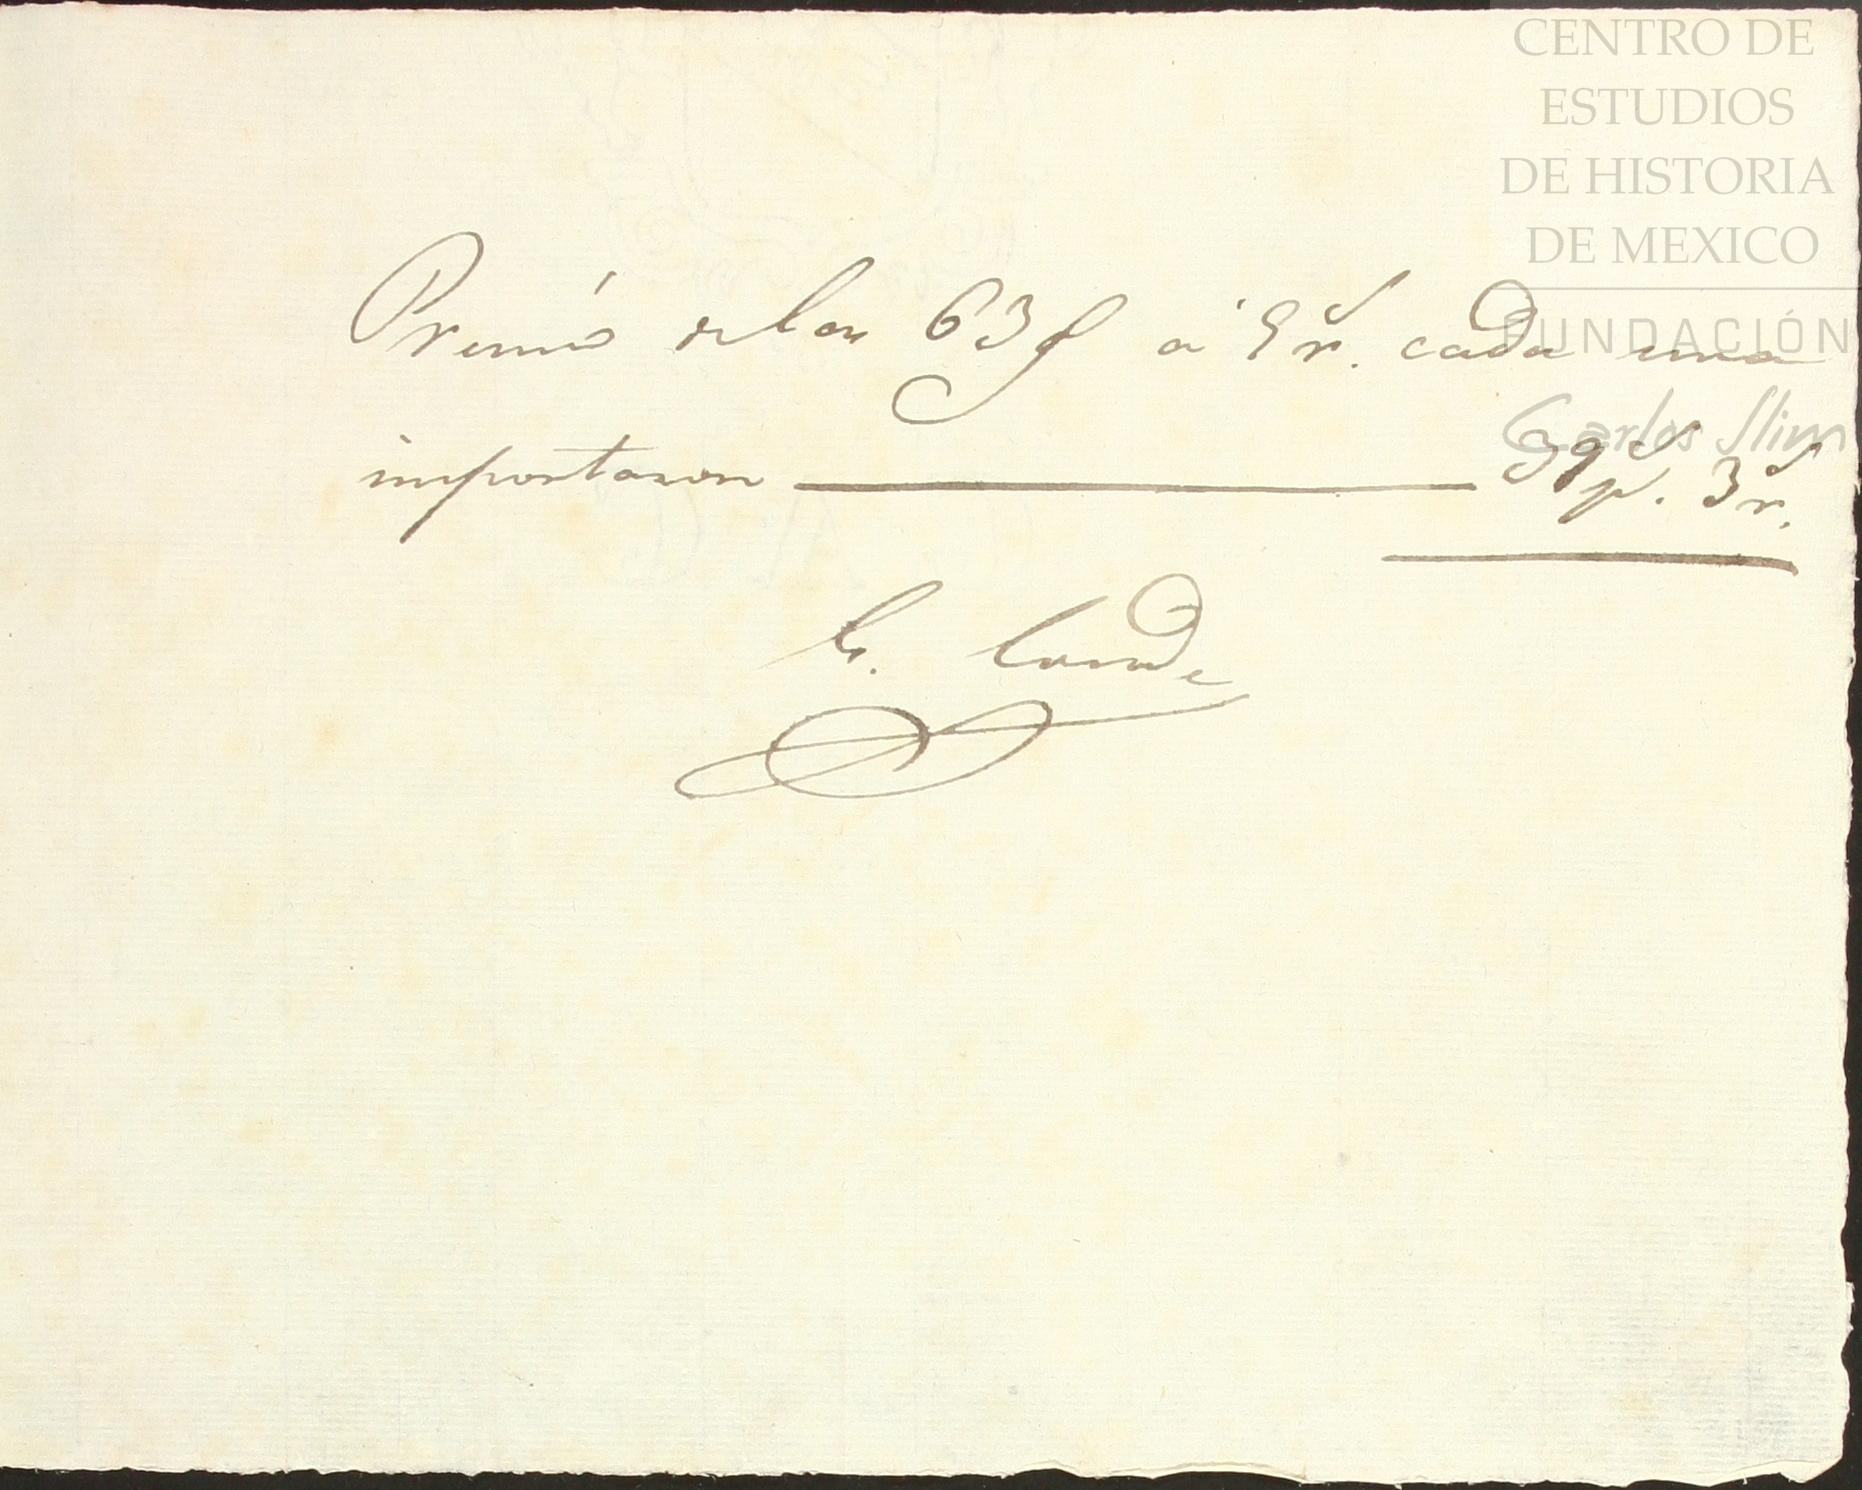 CENTRO DE
ESTUDIOS
DE HISTORIA
DE MEXICO
FUNDACIÓN
Carlos Slim
Premio de las 63 á 5 rs. cada una
importaron 39 ps. 3 rs.
Conde